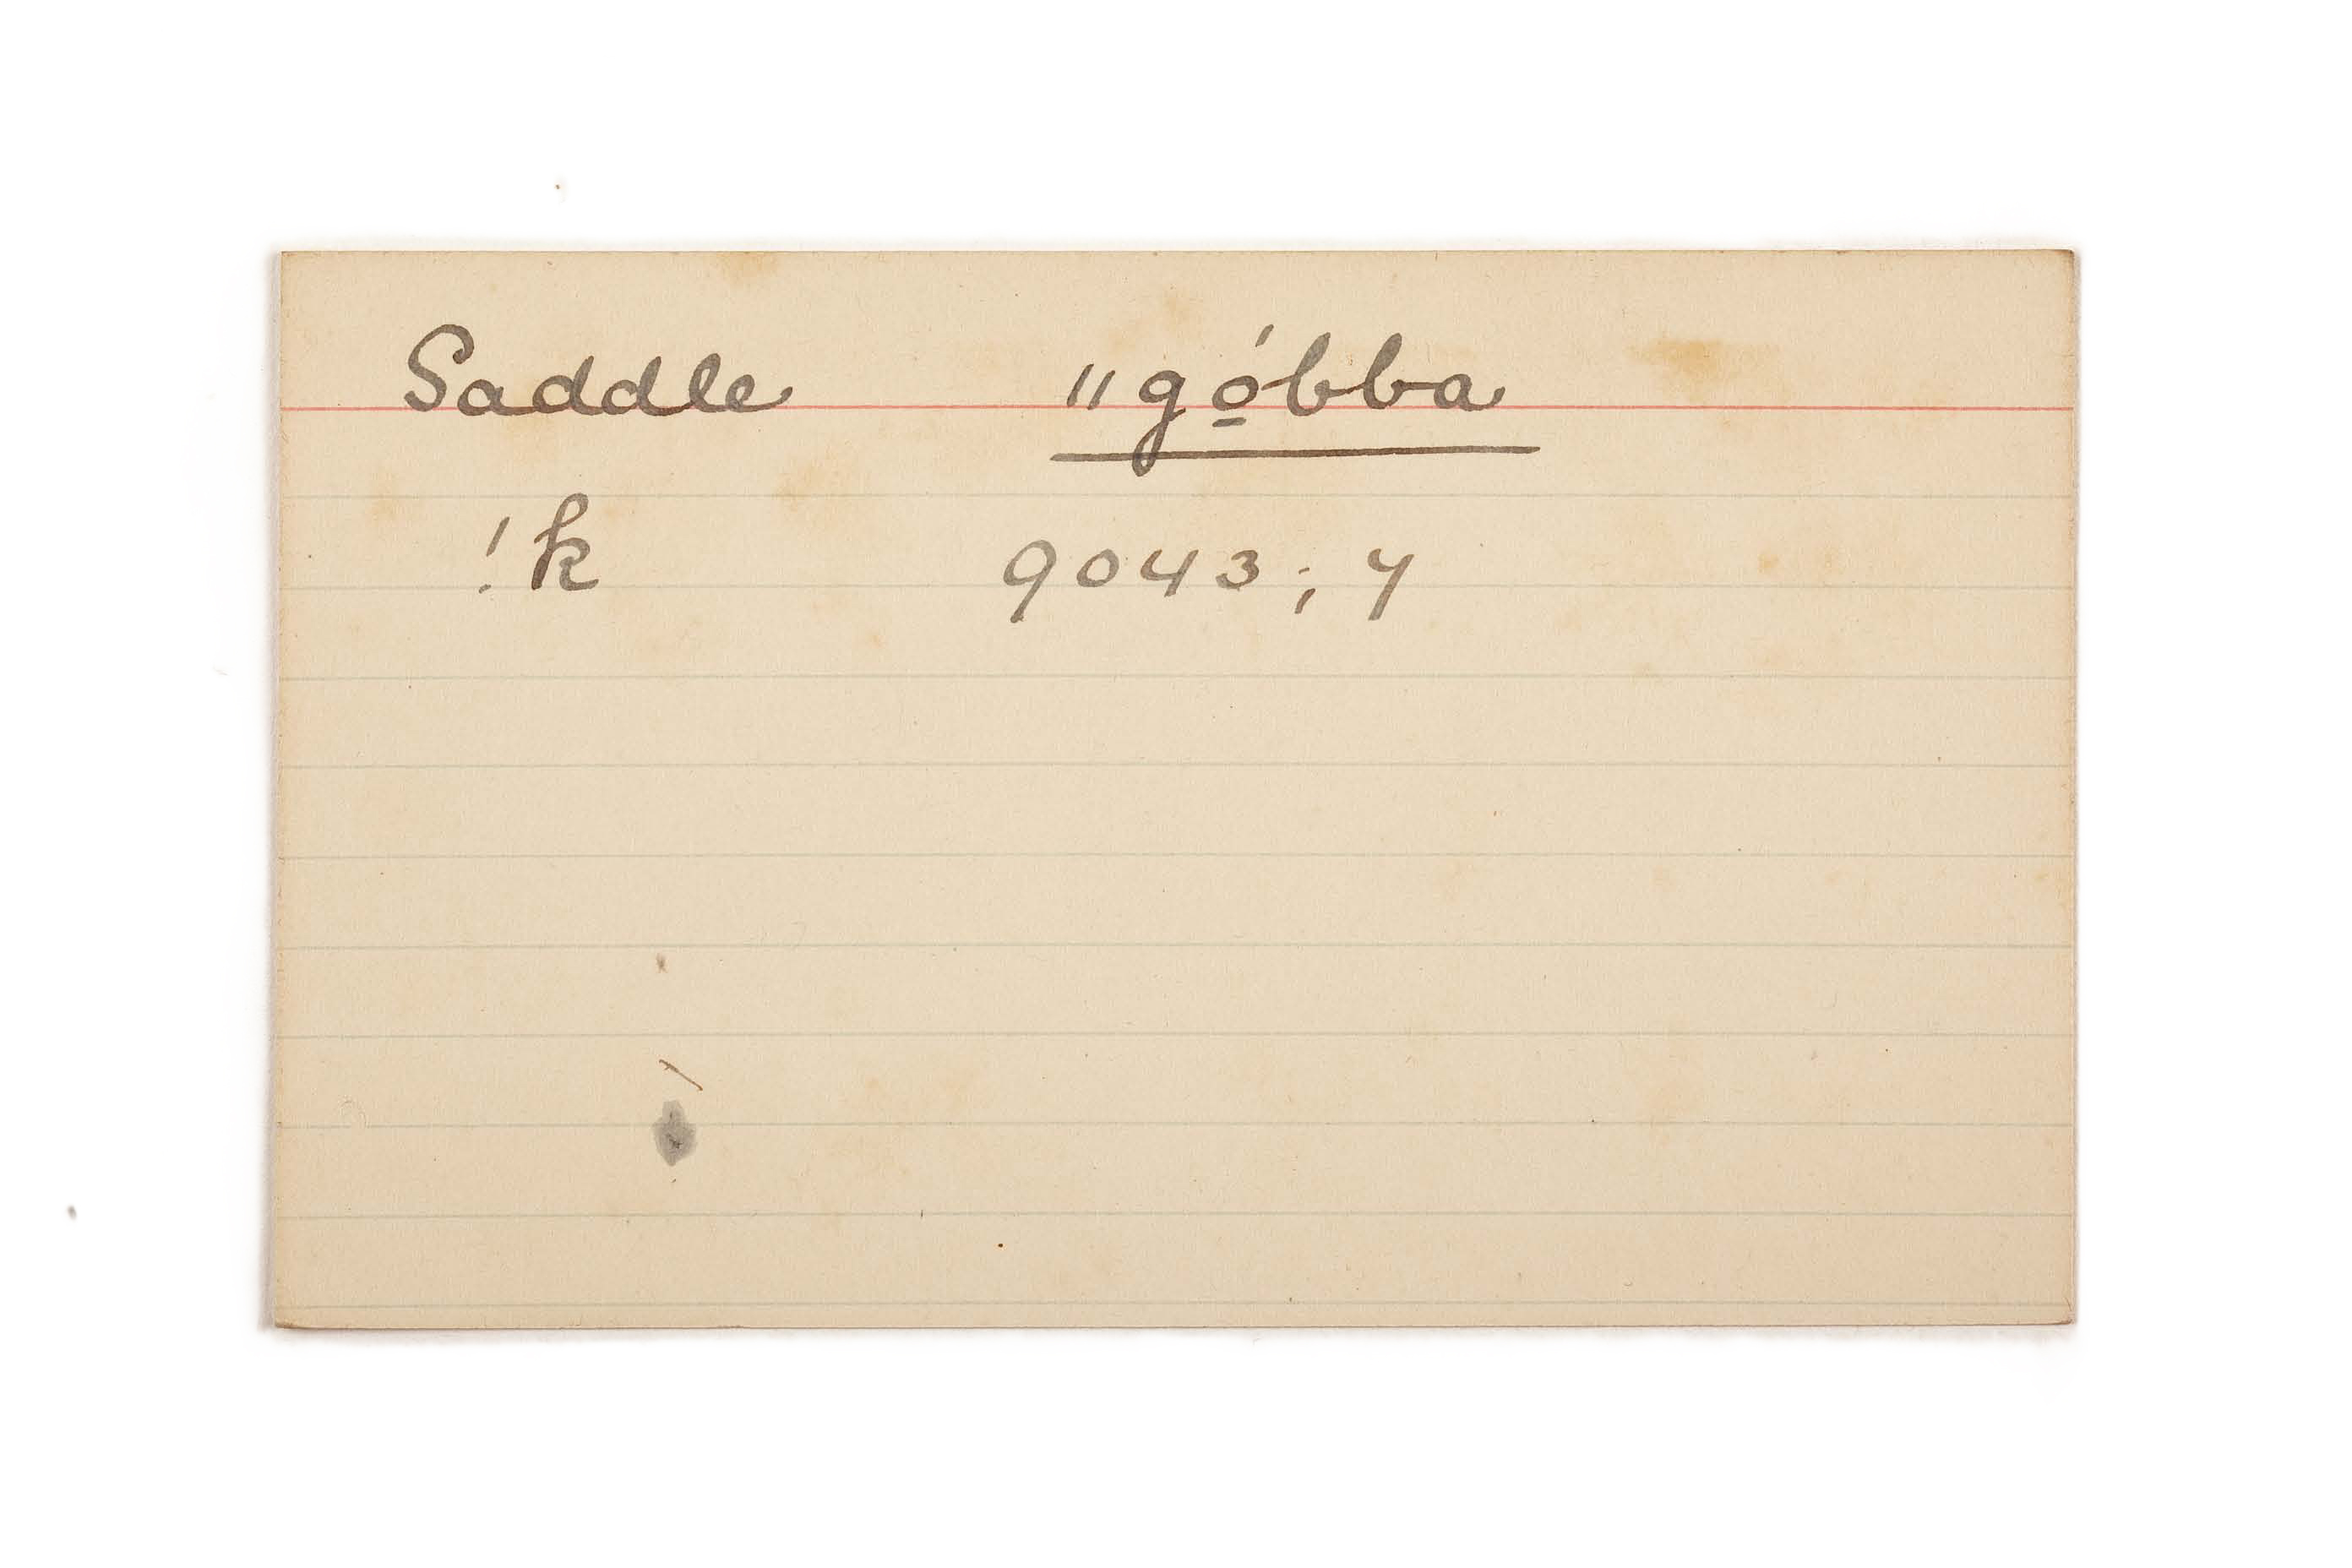 Saddle ǁgó̱bba
!k 9043; 7